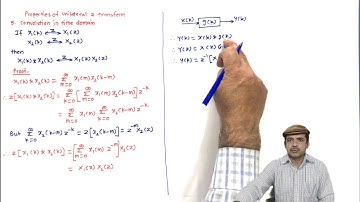 Properties of Unilateral z transform
5. Convolution in time domain
If x₁(k) ⟷z X₁(z)
x₂(k) ⟷z X₂(z)
then
x₁(k) * x₂(k) ⟷z X₁(z) X₂(z)
Proof:-
x₁(k) * x₂(k) = ∞Σm=0 x₁(m) x₂(k-m)
∴ z[x₁(k) * x₂(k)] = ∞Σk=0 [∞Σm=0 x₁(m) x₂(k-m)] z⁻ᵏ
= ∞Σm=0 x₁(m) ∞Σk=0 x₂(k-m) z⁻ᵏ
But ∞Σk=0 x₂(k-m) z⁻ᵏ = z[x₂(k-m)] = z⁻ᵐ X₂(z)
∴ z[x₁(k) * x₂(k)] = [∞Σm=0 x₁(m) z⁻ᵐ] X₂(z)
= X₁(z) X₂(z)
x(k) g(k) y(k)
∴ y(k) = x(k) * g(k)
∴ Y(z) = X(z) G
∴ y(k) = z⁻¹[X